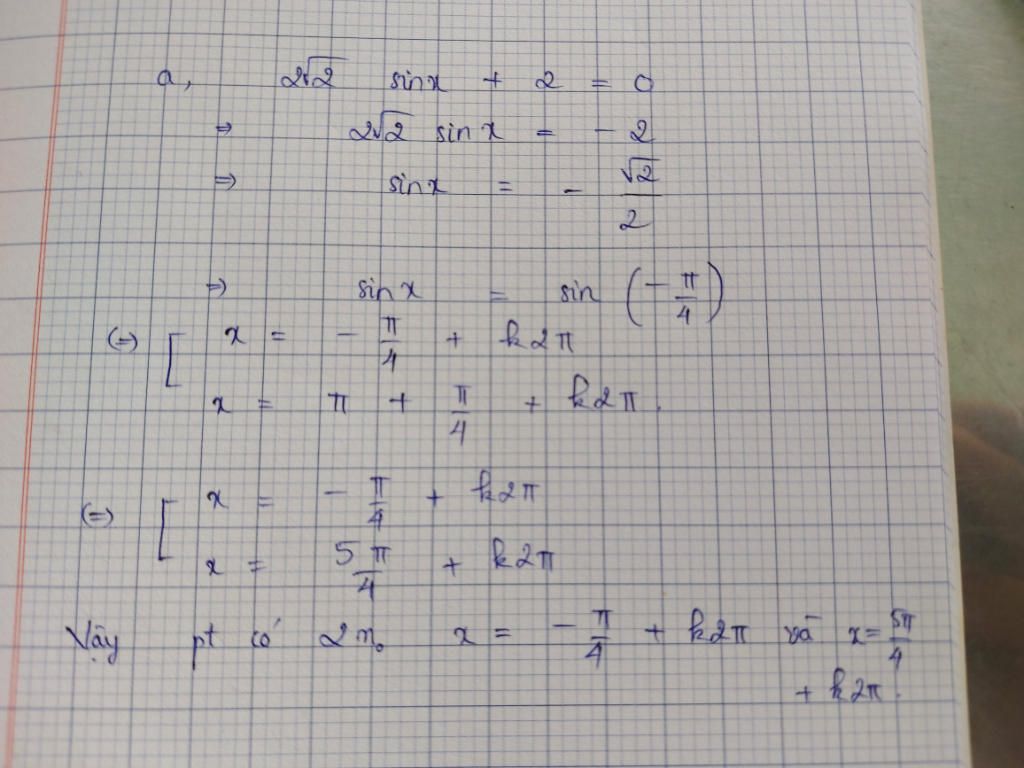 a, 2√2 sinx + 2 = 0
⇒ 2√2 sinx = - 2
⇒ sinx = - √2/2
⇒ sinx = sin (- π/4)
(=) [ x = - π/4 + k2π
x = π + π/4 + k2π.
(=) [ x = - π/4 + k2π
x = 5π/4 + k2π
Vậy pt có 2 no x = - π/4 + k2π và x = 5π/4
+ k2π.